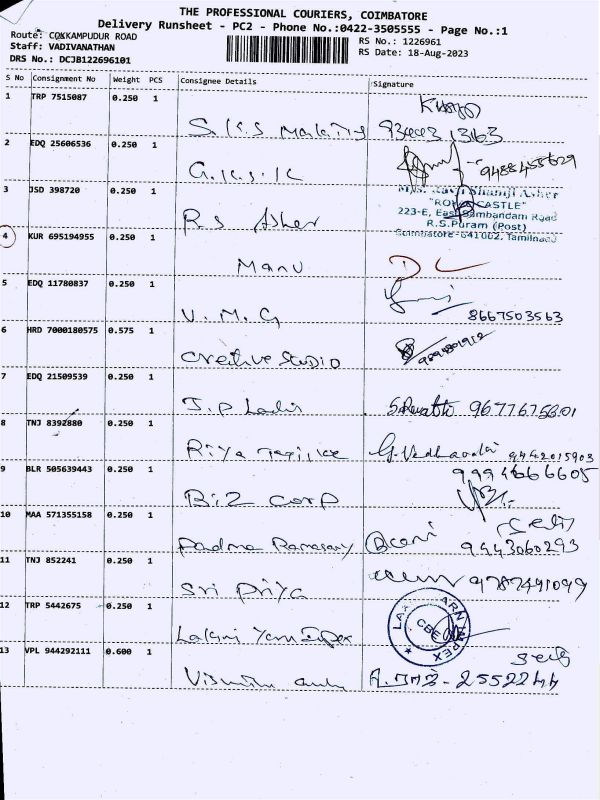 THE PROFESSIONAL COURIERS, COIMBATORE
Delivery Runsheet - PC2 - Phone No.:0422-3505555 - Page No.:1
Route: COKKAMPUDUR ROAD
RS No.: 1226961
Staff: VADIVANATHAN
RS Date: 18-Aug-2023
DRS No.: DCJB122696101
S No Consignment No Weight PCS Consignee Details Signature
1 TRP 7515087 0.250 1
2 EDQ 25606536 0.250 1
G.K.S.K 9488455629
3 JSD 398720 0.250 1
R.S Asher
"ROYAL CASTLE"
223-E, East Sambandam Road
R.S.Puram (Post)
Coimbatore-641002, Tamilnadu
4 KUR 695194955 0.250 1
Manu D C
5 EDQ 11780837 0.250 1
V. M. G 8667503563
6 HRD 7000180575 0.575 1
Creative Studio
7 EDQ 21509539 0.250 1
9677675801
8 TNJ 8392880 0.250 1
Riya 9442015903
9 BLR 505639443 0.250 1
9994666605
Biz Corp
10 MAA 571355158 0.250 1
Padma Ramasay 9443060293
11 TNJ 852241 0.250 1
Sri Priya 9787491099
12 TRP 5442675 0.250 1
CBE
13 VPL 944292111 0.600 1
2552244